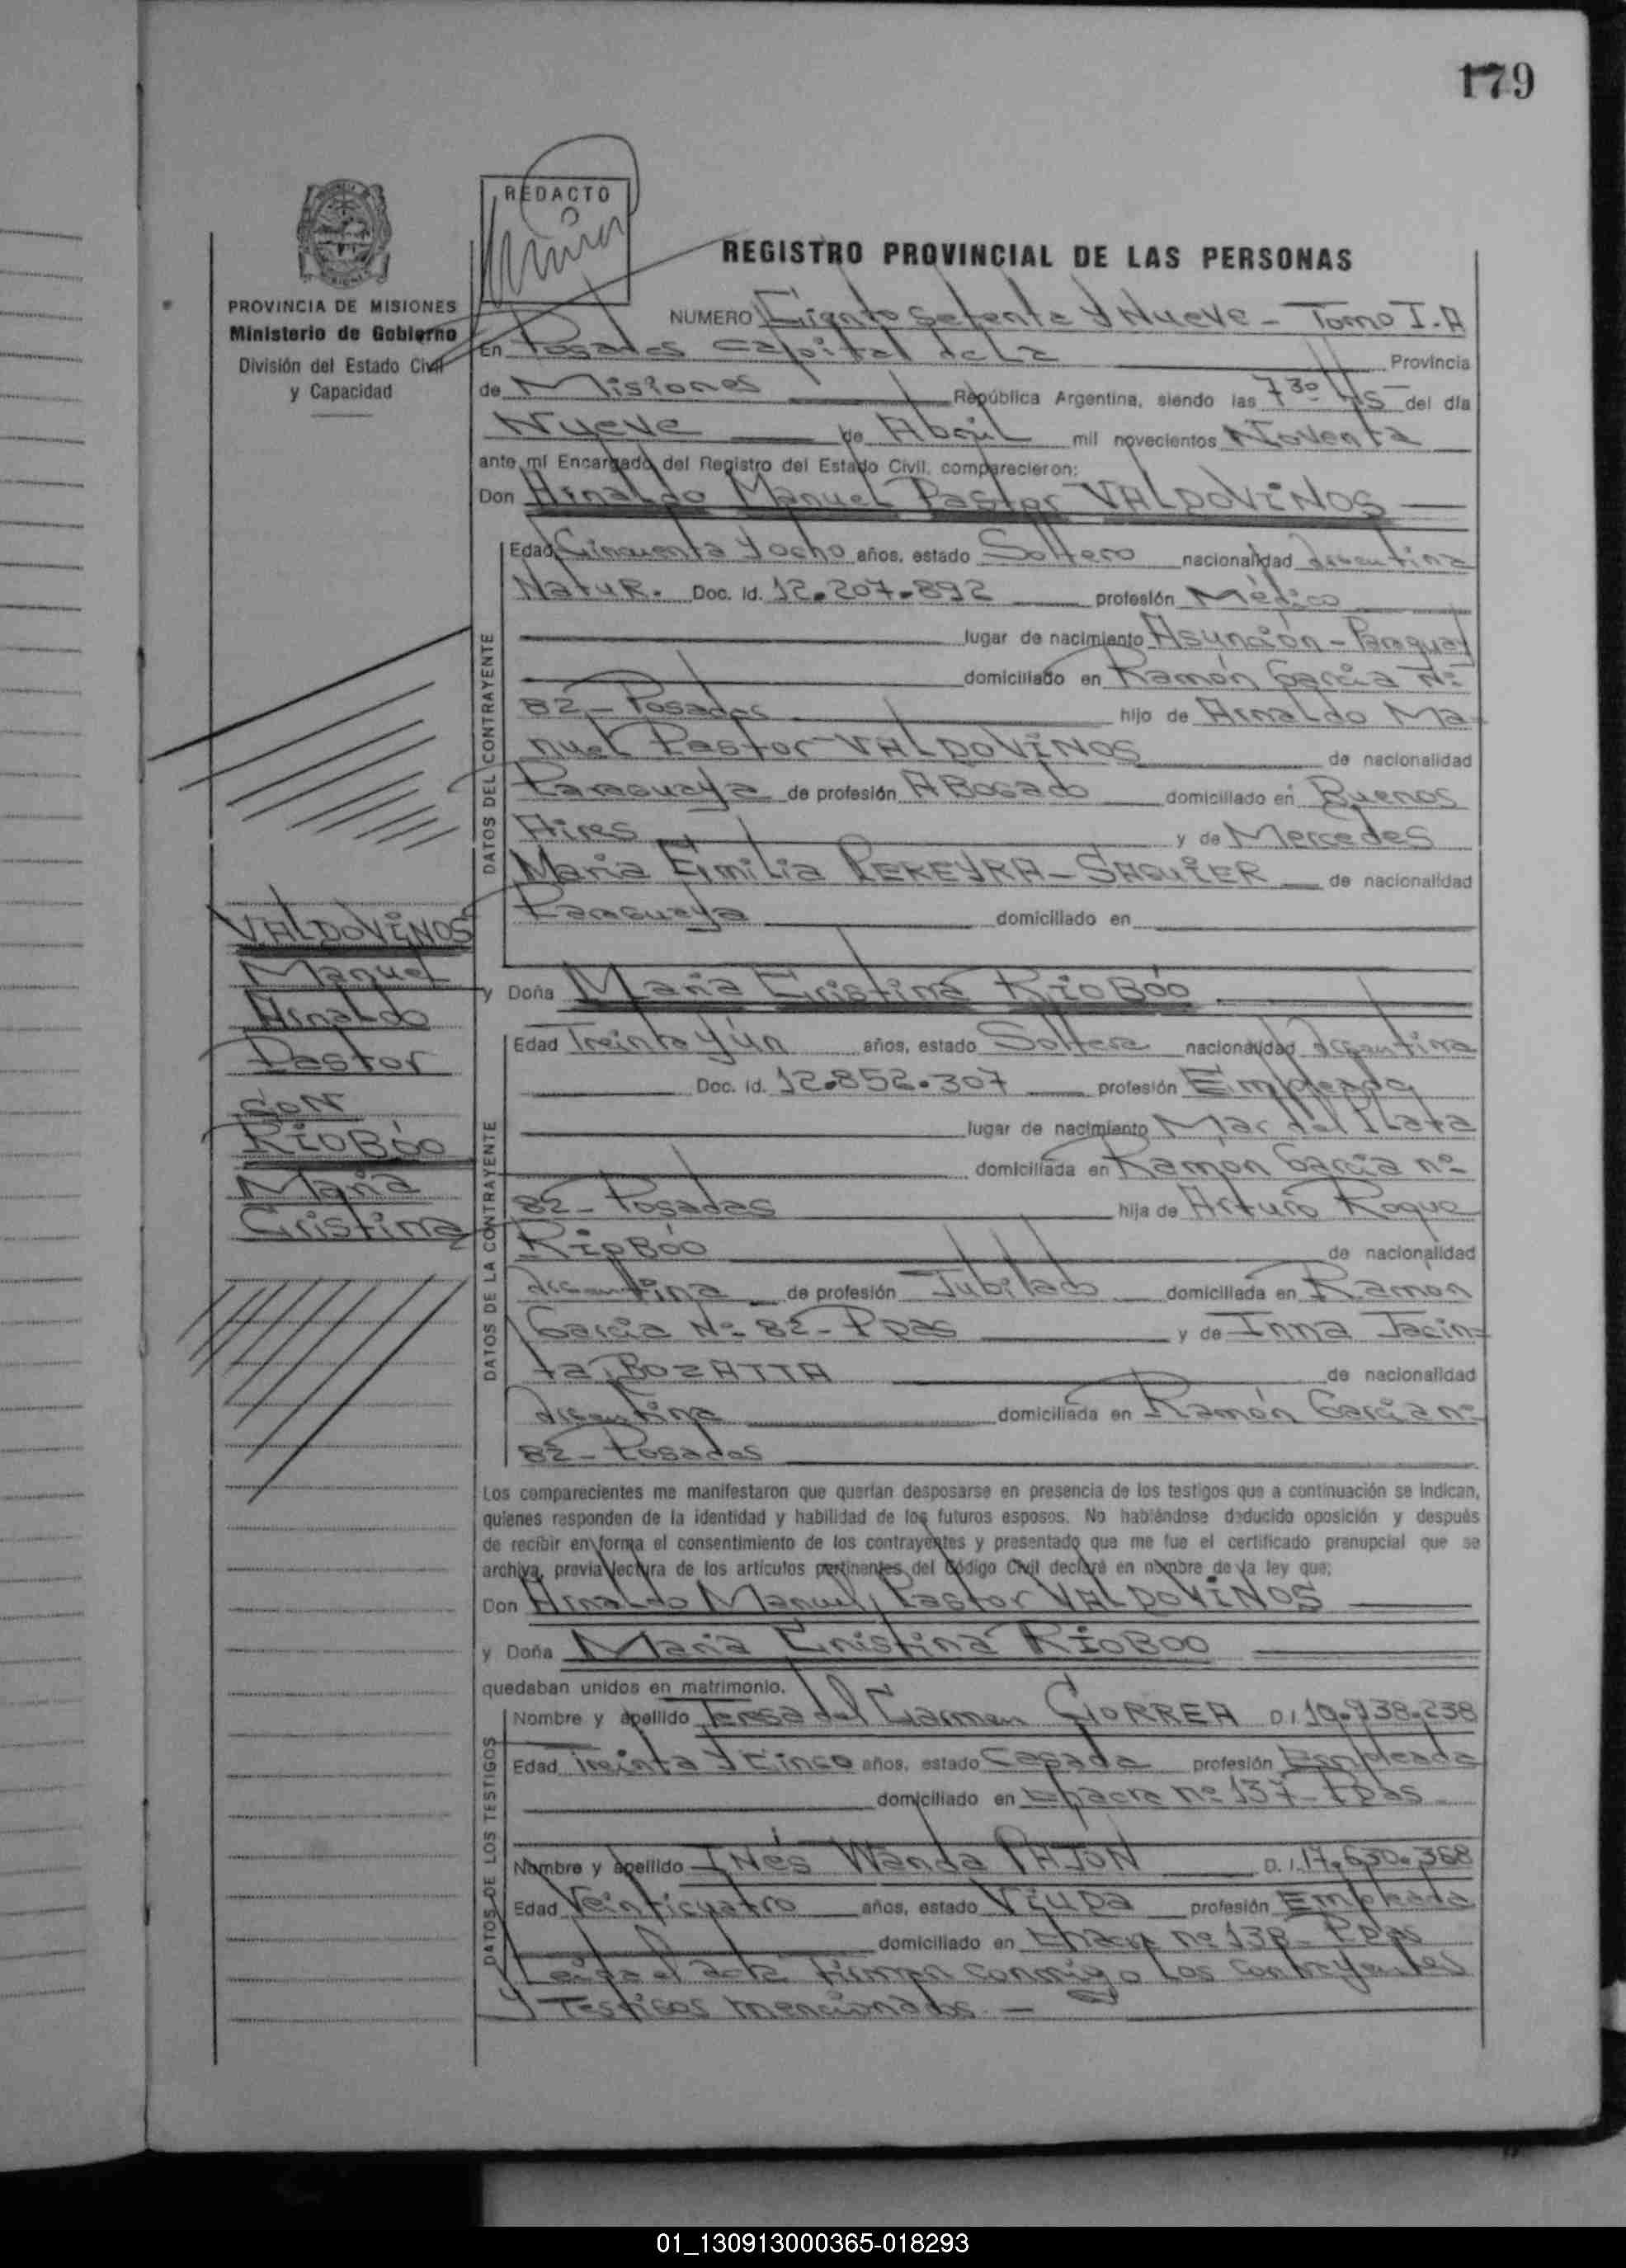 179
REDACTO
REGISTRO PROVINCIAL DE LAS PERSONAS
PROVINCIA DE MISIONES
Ministerio de Gobierno
División del Estado Civil
y Capacidad
NUMERO Ciento Setenta y Nueve - Tomo I-A
En Posadas Capital de La Provincia
de Misiones República Argentina, siendo las 7 30 Hs del día
Nueve de Abril mil novecientos Noventa
ante mí Encargado del Registro del Estado Civil, comparecieron:
Don Arnaldo Manuel Pastor VALDOVINOS
DATOS DEL CONTRAYENTE
Edad Cincuenta y ocho años, estado Soltero nacionalidad Argentina
Natur. Doc. Id. 12.207.892 profesión Médico
lugar de nacimiento Asunción - Paraguay
domiciliado en Ramón García Nº
82 - Posadas hijo de Arnaldo Ma-
nuel Pastor VALDOVINOS de nacionalidad
Paraguaya de profesión ABOGADO domiciliado en Buenos
Aires y de Mercedes
María Emilia PEREYRA - SAGUIER de nacionalidad
Paraguaya domiciliado en
VALDOVINOS
Manuel
Arnaldo
Pastor
CON
RIOBÓO
María
Cristina
y Doña María Cristina RIOBÓO
DATOS DE LA CONTRAYENTE
Edad Treinta y ún años, estado Soltera nacionalidad Argentina
Doc. Id. 12.852.307 profesión Empleada
lugar de nacimiento Mar del Plata
domiciliada en Ramón García nº
82 - Posadas hija de Arturo Roque
RIOBÓO de nacionalidad
Argentina de profesión Jubilado domiciliada en Ramón
García Nº 82 - Pdas y de Inna Jacin-
ta BOZATTA de nacionalidad
Argentina domiciliada en Ramón García nº
82 - Posadas
Los comparecientes me manifestaron que querían desposarse en presencia de los testigos que a continuación se indican,
quienes responden de la identidad y habilidad de los futuros esposos. No habiéndose deducido oposición y después
de recibir en forma el consentimiento de los contrayentes y presentado que me fue el certificado prenupcial que se
archiva, previa lectura de los artículos pertinentes del Código Civil declaré en nombre de la ley que:
Don Arnaldo Manuel Pastor VALDOVINOS
y Doña María Cristina RIOBOO
quedaban unidos en matrimonio.
DATOS DE LOS TESTIGOS
Nombre y apellido Teresa del Carmen CORREA D.I. 10.938.238
Edad Treinta y Cinco años, estado Casada profesión Empleada
domiciliado en Chacra nº 137 - Pdas
Nombre y apellido INés Wanda PAJÓN D.I. 17.630.368
Edad Veinticuatro años, estado Viuda profesión Empleada
domiciliado en Chacra nº 138 - Pdas
Leída el acta Firman conmigo Los contrayentes
y Testigos mencionados. -
01_130913000365-018293